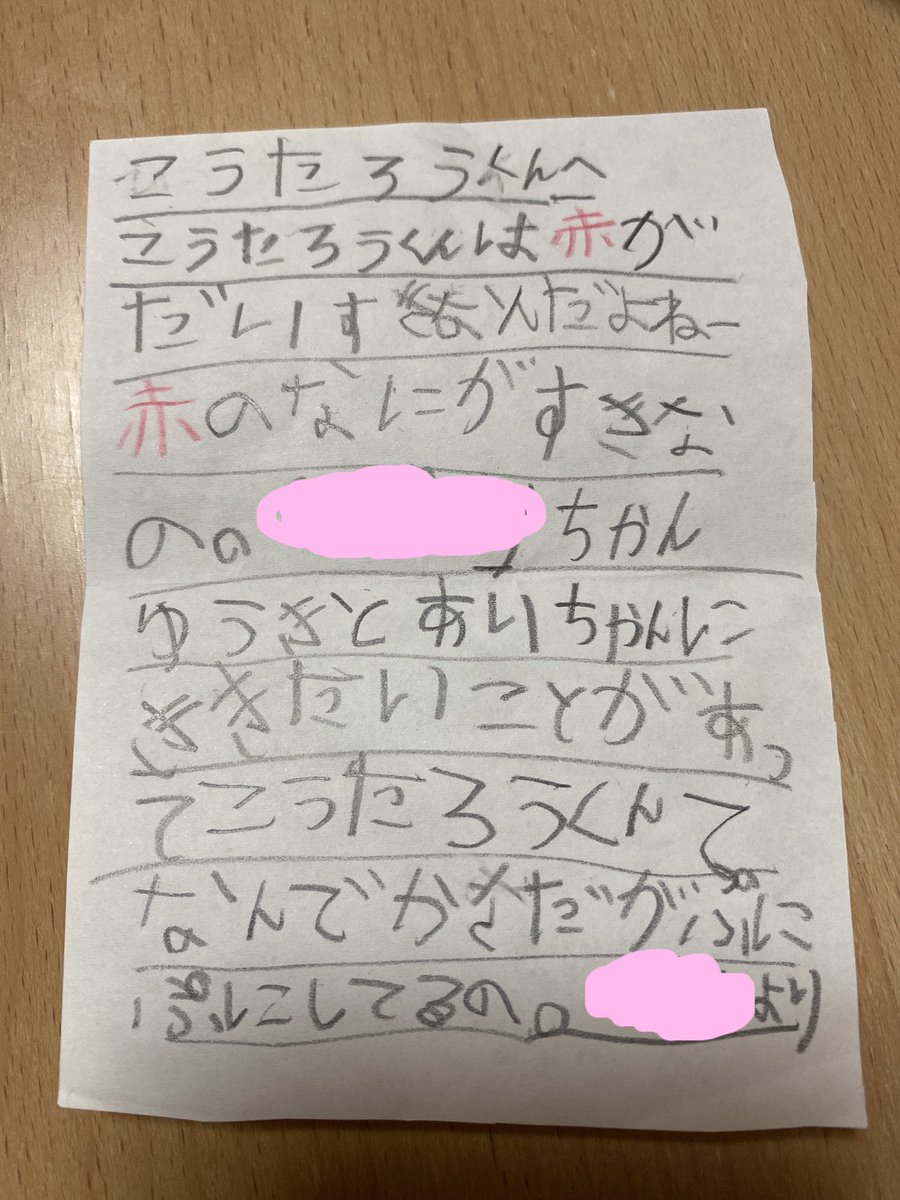 こうたろうくんへ
こうたろうくんは赤が
だいすきなんだよねー
赤のなにがすきな
のの ちかん
ゆうきとありちゃんに
ききたいことがあっ
てこうたろうくんて
なんでかさだがぷに
ぷにしてるの。 より